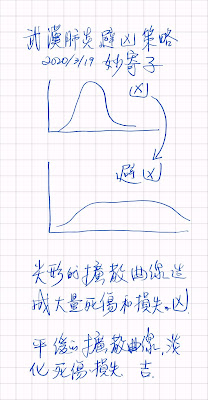 武漢肺炎避凶策略
2020/2/19 妙寄子
凶
避凶
尖形的擴散曲線造
成大量死傷和損失。凶
平緩的擴散曲線,淡
化死傷損失 吉